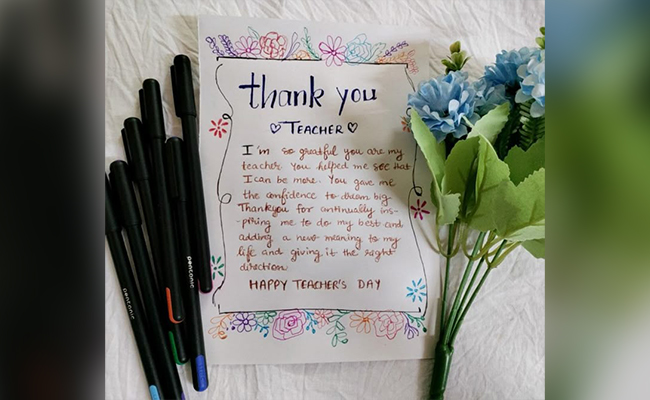 thank you
♡ TEACHER ♡
I'm so greatful you are my
teacher. You helped me see that
I can be more.. You gave me
the confidence to dream big.
Thankyou for continually ins-
-piring me to do my best and
adding a new meaning to my
life and giving it the right
direction.
HAPPY TEACHER'S DAY
ponconic
ponconic